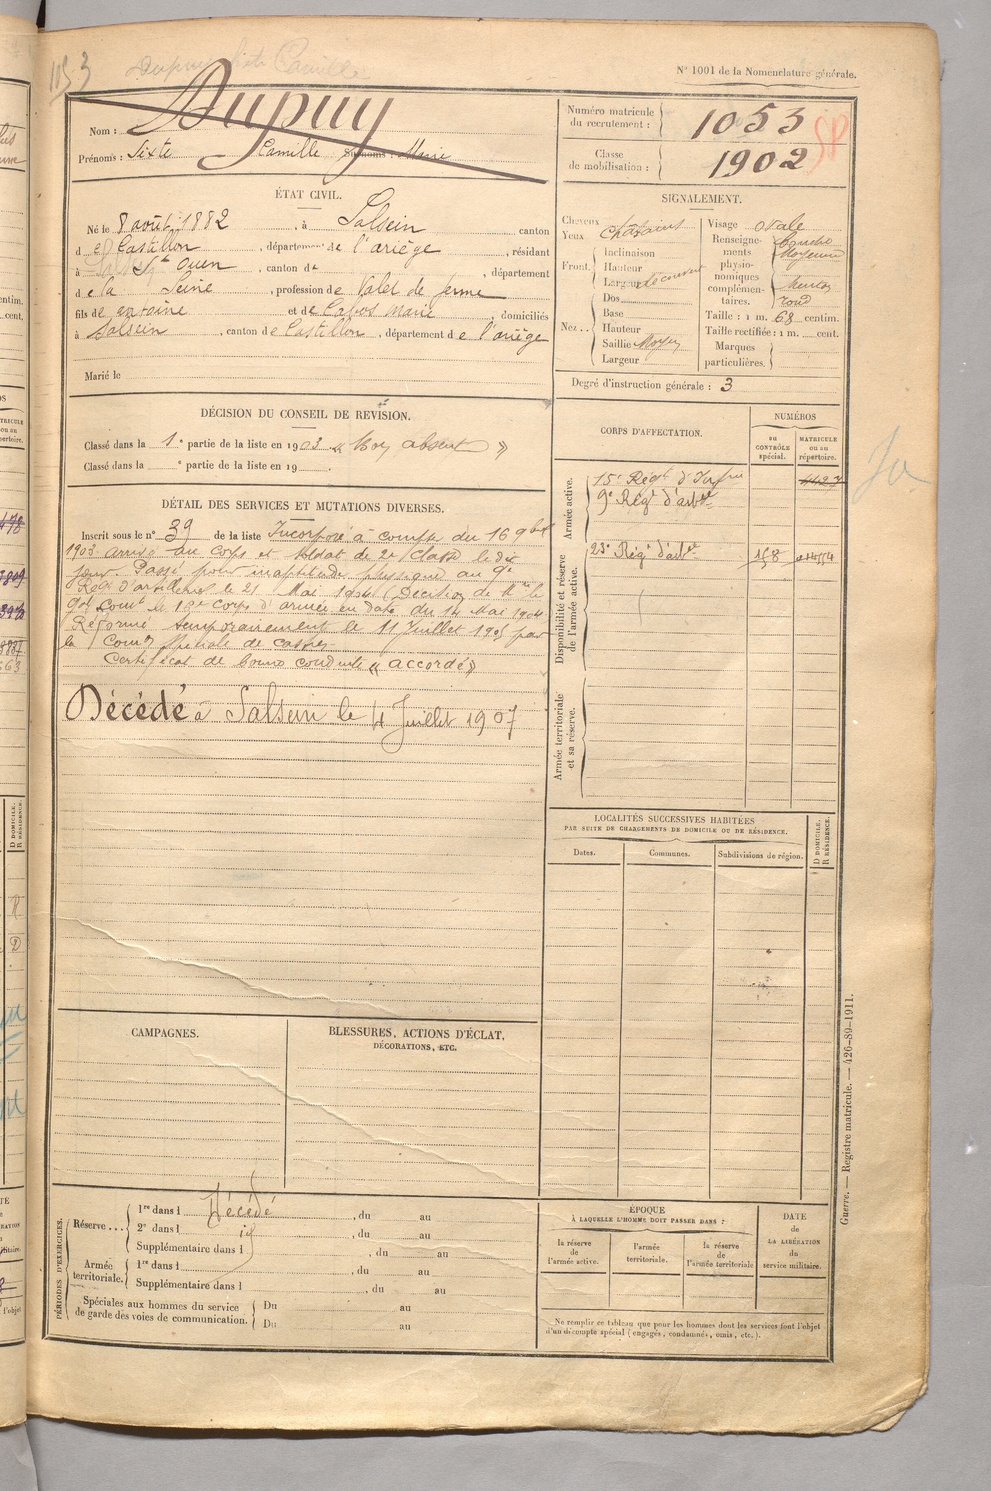 1053
Dupuy Sixte Camille
N° 1001 de la Nomenclature générale.
Nom : Dupuy
Prénoms : Sixte Camille Surnoms : Marie
Numéro matricule du recrutement : 1053
Classe de mobilisation : 1902
SP
ÉTAT CIVIL.
Né le 8 août 1882, à Salsein canton
de Castillon, département de l'ariège, résidant
à St Ouen, canton de , département
de la Seine, profession de Valet de ferme
fils de antoine et de Marie, domiciliés
à Salsein, canton de Castillon, département de l'ariège
Marié le
SIGNALEMENT.
Cheveux
Yeux
châtains
Front.
Inclinaison
Hauteur
Largeur
découvert
Nez..
Dos
Base
Hauteur
Saillie Moyen
Largeur
Visage ovale
Renseignements physionomiques complémentaires.
bouche
Moyenne
Menton
rond
Taille : 1 m. 68 centim.
Taille rectifiée : 1 m. cent.
Marques particulières.
Degré d'instruction générale : 3
DÉCISION DU CONSEIL DE REVISION.
Classé dans la 1e partie de la liste en 1903 « Bon absent »
Classé dans la e partie de la liste en 19 .
DÉTAIL DES SERVICES ET MUTATIONS DIVERSES.
Inscrit sous le n° 39 de la liste Incorporé à compter du 16 9bre
1903 arrivé au corps et soldat de 2e classe le dit
jour. Passé pour inaptitude physique au 9e
Régt d'artillerie le 21 Mai 1904 (Décision de Mr le
Gal Comt le 18e corps d'armée en date du 14 Mai 1904
Réformé temporairement le 11 Juillet 1905 par
la Comon spéciale de castres
Certificat de bonne conduite « accordé »
Décédé à Salsein le 4 Juillet 1907
CORPS D'AFFECTATION.
NUMÉROS
au CONTRÔLE spécial.
MATRICULE ou au répertoire.
Armée active.
15e Régt d'Infrie
9e Régt d'artie
4427
Disponibilité et réserve de l'armée active.
23e Régt d'artie 158
Armée territoriale et sa réserve.
LOCALITÉS SUCCESSIVES HABITÉES
PAR SUITE DE CHANGEMENTS DE DOMICILE OU DE RÉSIDENCE.
Dates.
Communes.
Subdivisions de région.
D DOMICILE.
R RÉSIDENCE.
CAMPAGNES.
BLESSURES, ACTIONS D'ÉCLAT,
DÉCORATIONS, ETC.
PÉRIODES D'EXERCICES.
Réserve ...
1re dans l Décédé, du au
2e dans l id, du au
Supplémentaire dans l , du au
Armée territoriale.
1re dans l , du au
Supplémentaire dans l , du au
Spéciales aux hommes du service de garde des voies de communication.
Du au
Du au
ÉPOQUE
À LAQUELLE L'HOMME DOIT PASSER DANS :
la réserve de l'armée active.
l'armée territoriale.
la réserve de l'armée territoriale
DATE
de
LA LIBÉRATION
du
service militaire.
Ne remplir ce tableau que pour les hommes dont les services font l'objet
d'un décompte spécial (engagés, condamnés, omis, etc.).
Guerre. — Registre matricule. — 426-89-1911.